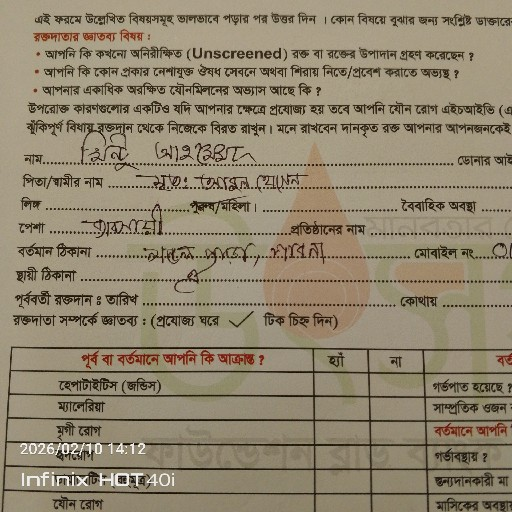 এই ফরমে উল্লেখিত বিষয়সমূহ ভালভাবে পড়ার পর উত্তর দিন । কোন বিষয়ে বুঝার জন্য সংশ্লিষ্ট ডাক্তারের
রক্তদাতার জ্ঞাতব্য বিষয় :
• আপনি কি কখনো অনিরীক্ষিত (Unscreened) রক্ত বা রক্তের উপাদান গ্রহণ করেছেন ?
• আপনি কি কোন প্রকার নেশাযুক্ত ঔষধ সেবনে অথবা শিরায় নিতে/প্রবেশ করাতে অভ্যস্থ ?
• আপনার একাধিক অরক্ষিত যৌনমিলনের অভ্যাস আছে কি ?
উপরোক্ত কারণগুলোর একটিও যদি আপনার ক্ষেত্রে প্রযোজ্য হয় তবে আপনি যৌন রোগ এইচআইভি (এ
ঝুঁকিপূর্ণ বিষয়ে রক্তদান থেকে নিজেকে বিরত রাখুন। মনে রাখবেন দানকৃত রক্ত আপনার আপনজনকেই
নাম মিন্টু ডোনার আই
পিতা/স্বামীর নাম মৃতঃ আবুল হোসেন
লিঙ্গ পুরুষ/মহিলা । বৈবাহিক অবস্থা
পেশা ব্যবসায়ী প্রতিষ্ঠানের নাম
বর্তমান ঠিকানা পাবনা মোবাইল নং
স্থায়ী ঠিকানা ঐ
পূর্ববর্তী রক্তদান : তারিখ কোথায়
রক্তদাতা সম্পর্কে জ্ঞাতব্য : (প্রযোজ্য ঘরে ✓ টিক চিহ্ন দিন)
পূর্ব বা বর্তমানে আপনি কি আক্রান্ত ? হ্যাঁ না বর্ত
হেপাটাইটিস (জন্ডিস) গর্ভপাত হয়েছে ?
ম্যালেরিয়া সাম্প্রতিক ওজন
মৃগী রোগ বর্তমানে আপনি
গর্ভাবস্থায় ?
স্তন্যদানকারী মা
যৌন রোগ মাসিকের অবস্থা
2026/02/10 14:12
Infinix HOT 40i